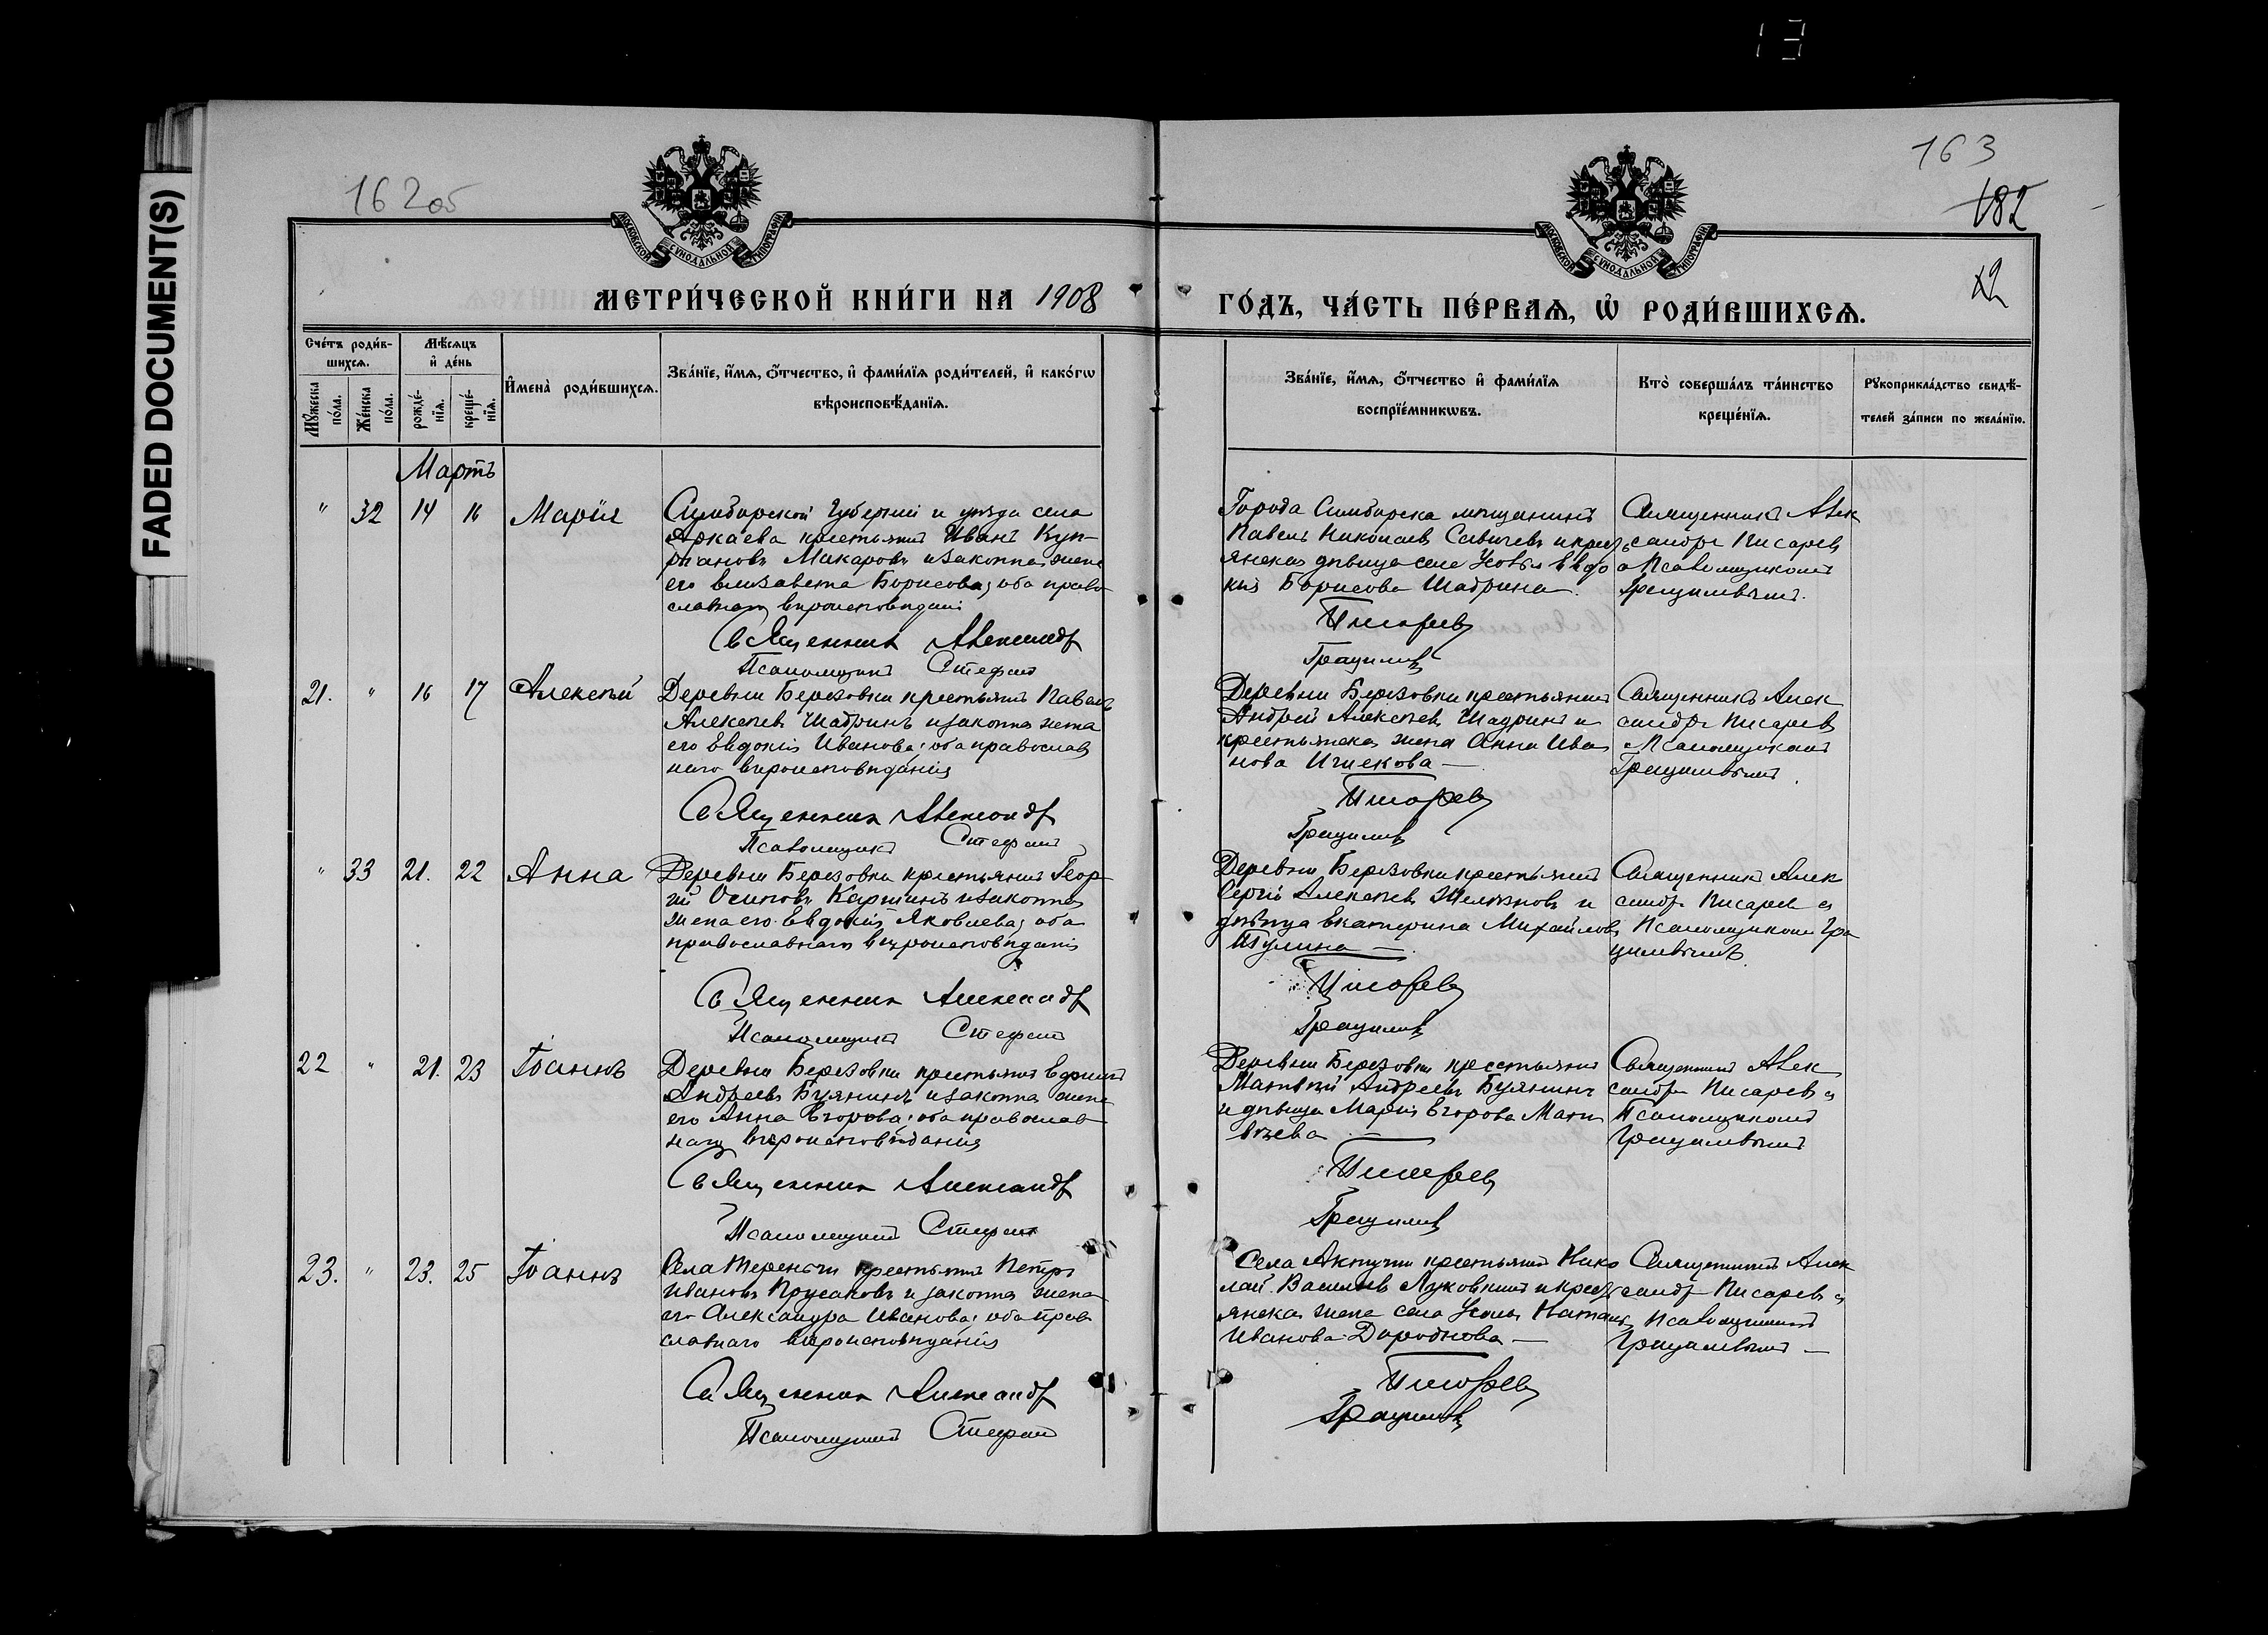 13
FADED DOCUMENT(S)
162 об
163
182
МОСКОВСКОЙ СѴНОДАЛЬНОЙ ТИПОГРАФІИ
МОСКОВСКОЙ СѴНОДАЛЬНОЙ ТИПОГРАФІИ
МЕТРИ́ЧЕСКОЙ КНИ́ГИ НА 1908
ГО́ДЪ, ЧА́СТЬ ПЕ́РВАѦ, Ѡ҆ РОДИ́ВШИХСѦ.
Сче́тъ роди́в-
шихсѧ.
Мѣ́сѧцъ
и҆ де́нь
Мꙋ́жеска
по́ла.
Же́нска
по́ла.
рожде́-
нїѧ.
креще́-
нїѧ.
И҆мена̀ роди́вшихсѧ.
Зва́нїе, и҆́мѧ, ѻ҆́тчество, и҆ фами́лїѧ роди́телей, и҆ како́гѡ
вѣроисповѣ́данїѧ.
Зва́нїе, и҆́мѧ, ѻ҆́тчество и҆ фами́лїѧ
воспрїе́мникѡвъ.
Кто̀ соверша́лъ та́инство
креще́нїѧ.
Рꙋкоприкла́дство свидѣ́-
телей за́писи по жела́нїю.
Мартъ
" 32 14 16 Марія
Симбирской Губерніи и уѣзда села
крестьянинъ Иванъ
Макаровъ и законная жена
его Елизавета Борисова; оба право
славнаго вѣроисповѣданія
Священникъ Александръ
Псаломщикъ Стефанъ
Города Симбирска мѣщанинъ
Павелъ Николаевъ Савичевъ и крест
янская дѣвица села Усолья Евдо
кія Борисова Шадрина.
Писаревъ
Грацилевъ
Священникъ Алек
сандръ Писаревъ
с Псаломщикомъ
Грацилевымъ.
21. " 16 17 Алексѣй
Деревни Березовки крестьянинъ Павелъ
Алексѣевъ Шадринъ и законная жена
его Евдокія Иванова; оба православ
наго вѣроисповѣданія
Священникъ Александръ
Псаломщикъ Стефанъ
Деревни Березовки крестьянинъ
Андрей Алексѣевъ Шадринъ и
крестьянская жена Анна Ива
нова
Писаревъ
Грацилевъ
Священникъ Алек
сандръ Писаревъ
с Псаломщикомъ
Грацилевымъ.
" 33 21. 22 Анна
Деревни Березовки крестьянинъ Геор-
гій Осиповъ Каршинъ и законная
жена его Евдокія Яковлева; оба
православнаго вѣроисповѣданія
Священникъ Александръ
Псаломщикъ Стефанъ
Деревни Березовки крестьянинъ
Сергій Алексѣевъ и
дѣвица Екатерина Михайлова
Писаревъ
Грацилевъ
Священникъ Алек
сандръ Писаревъ с
Псаломщикомъ Гра
цилевымъ
22 " 21. 23 Іоаннъ
Деревни Березовки крестьянинъ Ефимъ
Андреевъ Буянинъ и законная жена
его Анна Егорова; оба православ
наго вѣроисповѣданія
Священникъ Александръ
Псаломщикъ Стефанъ
Деревни Березовки крестьянинъ
Матвѣй Андреевъ Буянинъ
и дѣвица Марія Егорова Мат
вѣева
Писаревъ
Грацилевъ
Священникъ Алек
сандръ Писаревъ с
Псаломщикомъ
Грацилевымъ
23. " 23. 25 Іоаннъ
Села Тереньги крестьянинъ Петръ
Ивановъ Прусаковъ и законная жена
его Александра Иванова; оба право
славнаго вѣроисповѣданія
Священникъ Александръ
Псаломщикъ Стефанъ
Села Актуши крестьянинъ Нико
лай Васильевъ и крест
янская жена села Усолья Наталья
Иванова Дороднова
Писаревъ
Грацилевъ
Священникъ Алек
сандръ Писаревъ с
Псаломщикомъ
Грацилевымъ